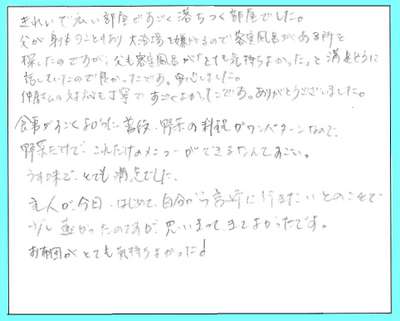 きれいで広い部屋ですごく落ちつく部屋でした。
父が 大浴場を嫌がるので客室風呂がある所を
探したのですが、父も客室風呂が「とても気持ちよかった」と満足そうに
話していたので良かったです。安心しました。
仲居さんの対応も丁寧ですごくよかったです。ありがとうございました。
食事がすごくよかった 普段、野菜の料理がワンパターンなので、
野菜だけで、これだけのメニューができるなんてすごい。
うす味で、とても満点でした。
主人が、今日、はじめて、自分から 行きたいとのことで
少し遠かったのですが、思いきって来てよかったです。
お布団がとても気持ちよかった!